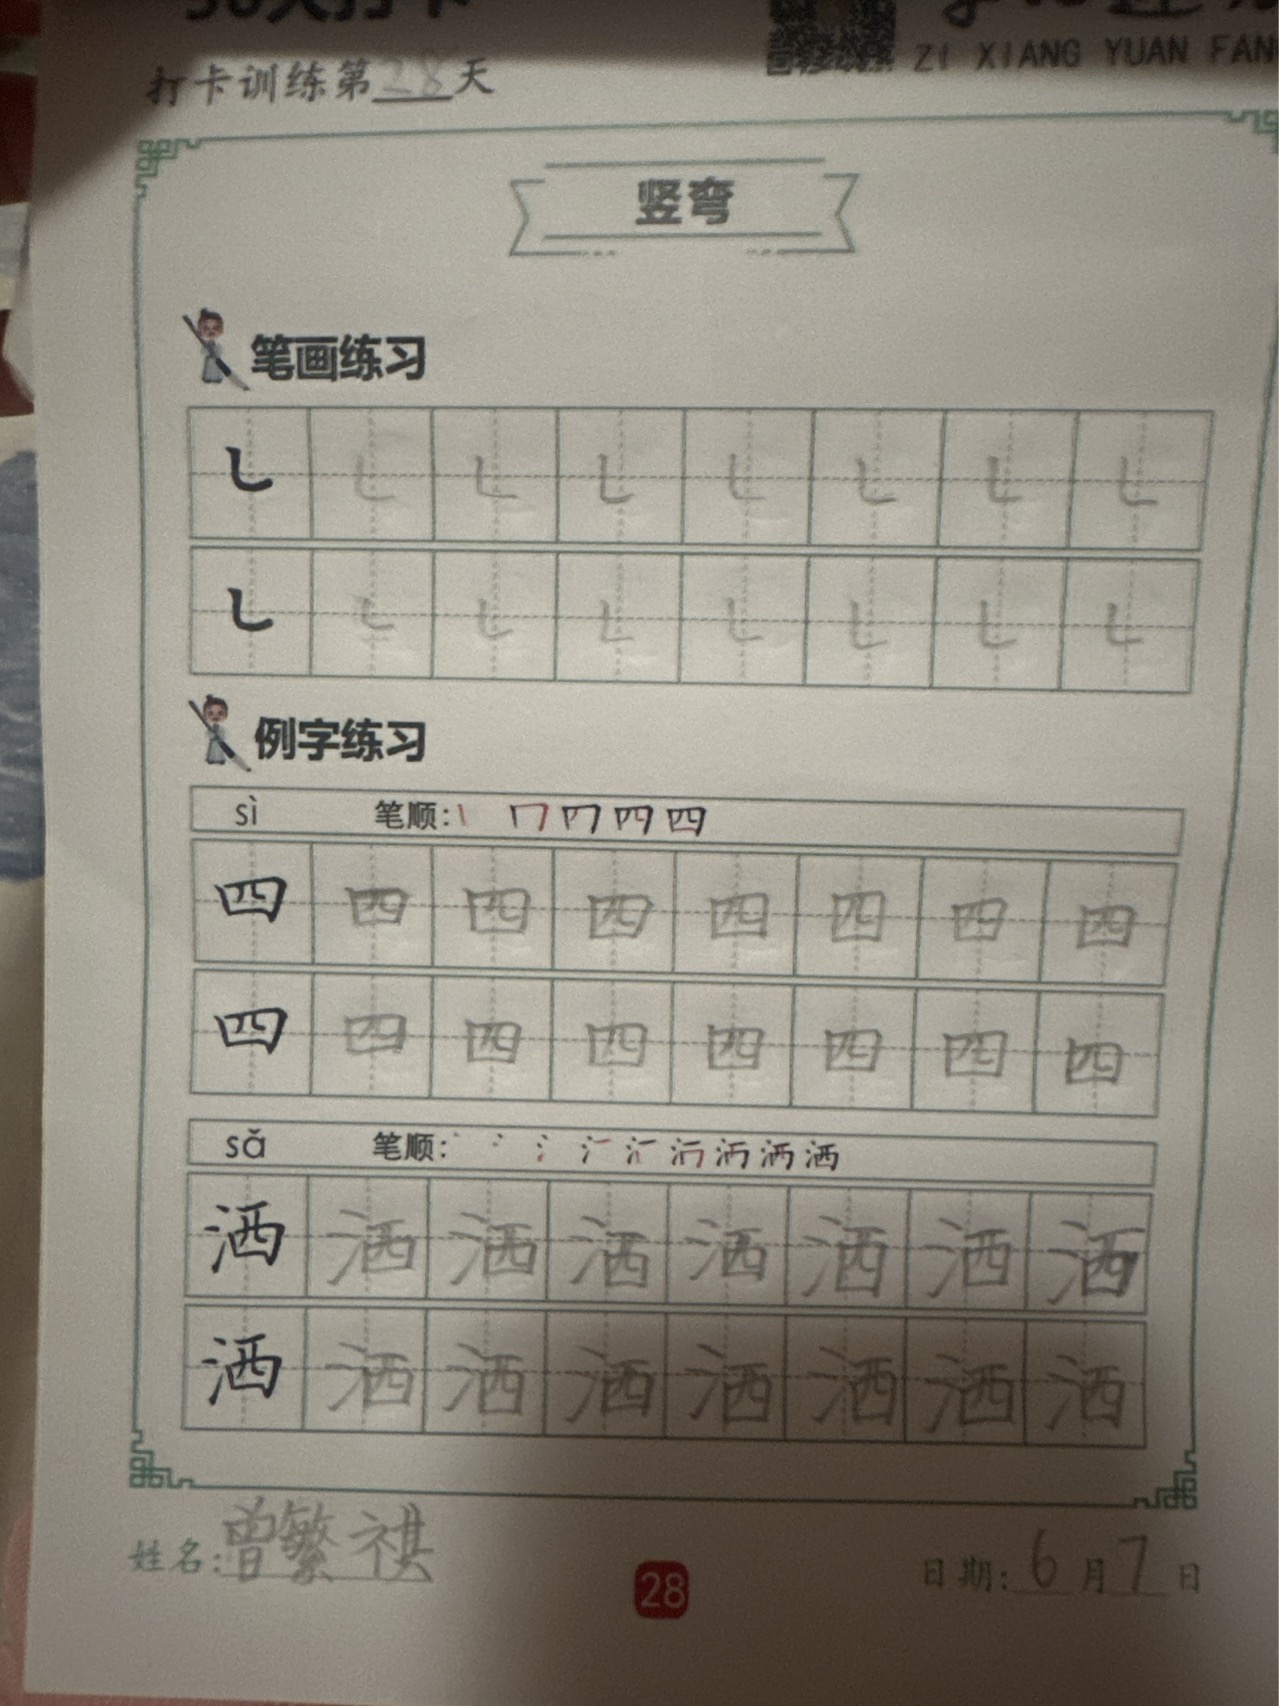 打卡训练第28天
ZI XIANG YUAN FAN
竖弯
笔画练习
㇄ ㇄ ㇄ ㇄ ㇄ ㇄ ㇄ ㇄
㇄ ㇄ ㇄ ㇄ ㇄ ㇄ ㇄ ㇄
例字练习
sì 笔顺: 四
四 四 四 四 四 四 四 四
四 四 四 四 四 四 四 四
sǎ 笔顺: 洒
洒 洒 洒 洒 洒 洒 洒 洒
洒 洒 洒 洒 洒 洒 洒 洒
姓名:曾繁祺
28
日期:6月7日